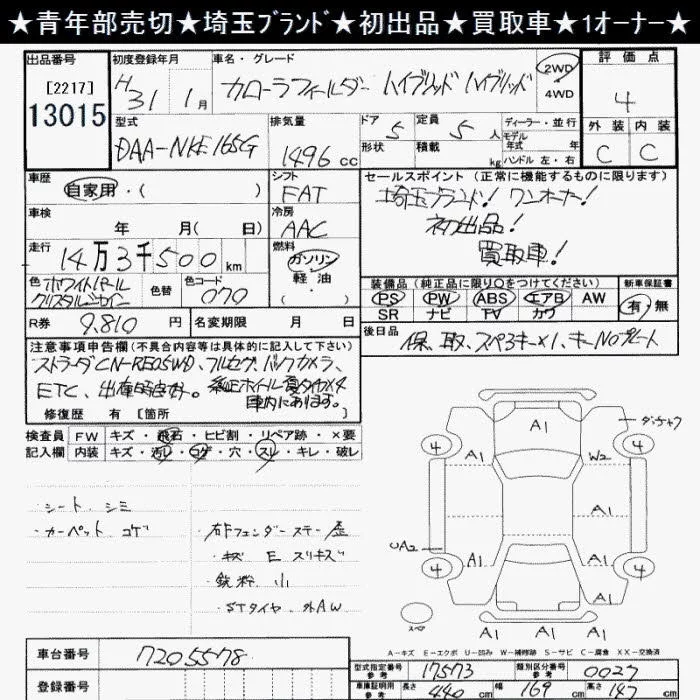 ★青年部売切★埼玉ブランド★初出品★買取車★1オーナー★
出品番号
[2217]
13015
初度登録年月
H31 1月
車名・グレード
カローラフィールダー ハイブリッド ハイブリッド
2WD
4WD
評価点
4
外装 内装
C C
型式
DAA-NKE165G
排気量
1496 cc
ドア 5
形状
定員 5 人
積載 kg
ディーラー・並行
モデル年式 年式
ハンドル 左・右
車歴
自家用・( )
車検
年 月( 日)
走行
14万3千500 km
色 ホワイトパールクリスタルシャイン
色替
色コード 070
シフト
FAT
冷房
AAC
燃料
ガソリン
軽油
( ・ )
セールスポイント (正常に機能するものに限ります)
埼玉ブランド! ワンオーナー!
初出品!
買取車!
装備品 (純正品に限り○をつけてください)
PS PW ABS エアB AW
SR ナビ TV カワ
新車保証書
有・無
R券 9,810 円
名変期限 月 日
後日品 保、取、スペアキー×1、キーNoプレート
注意事項申告欄(不具合内容等は具体的に記入して下さい)
ストラーダCN-RE05WD、フルセグ、バックカメラ、
ETC、出庫時良好。純正ホイール夏タイヤ×4
車内にあります。
修復歴 有 [箇所
検査員記入欄
FW キズ・飛石・ヒビ割・リペア跡・×要
内装 キズ・汚レ・コゲ・穴・スレ・キレ・破レ
・シート シミ
・カーペット コゲ
・右Fフェンダーステー歪
・キズ E スリキズ
・鉄粉 小
・STタイヤ、外AW
A1
タッチアップ
4 4
A1 W2
A1
A1
UA2 A1 A1
4 4
A1
スペア
A1 A1 A1
A-キズ E-エクボ U-凹み W-補修跡 S-サビ C-腐食 XX-交換済
車台番号 7205578
登録番号
型式指定番号 参考 17573
類別区分番号 参考 0027
車庫証明用 参考 長さ 440 cm 幅 169 cm 高さ 147 cm